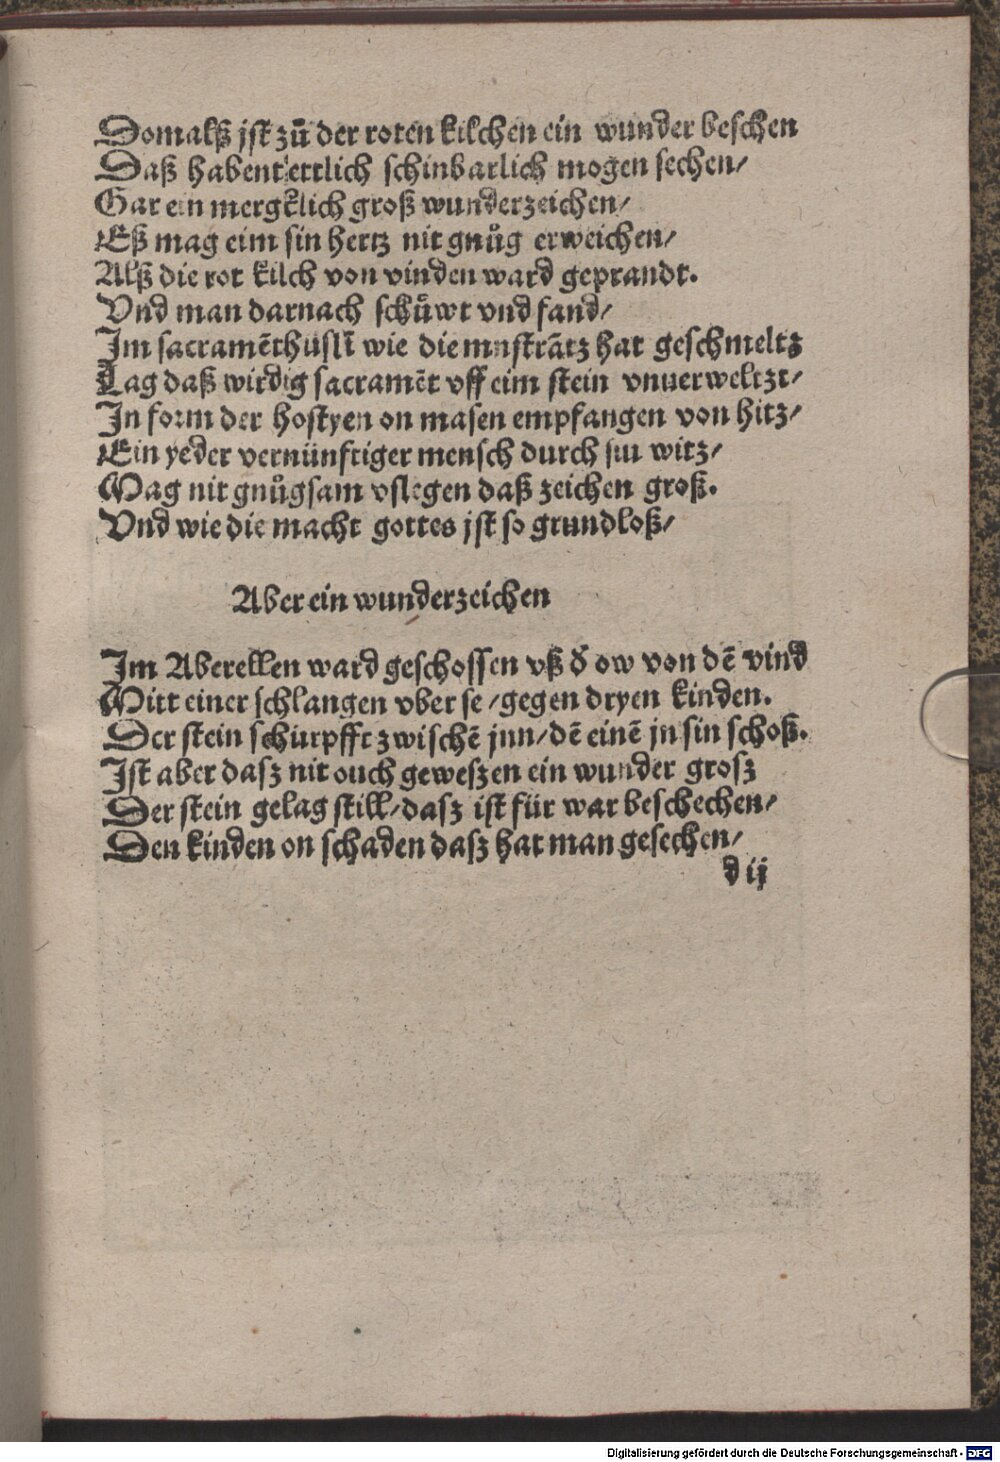 Domalß jst zů der roten kilchen ein wunder beschen
Daß habent ettlich schinbarlich mogen sechen/
Gar ein mergklich groß wunderzeichen/
Eß mag eim sin hertz nit gnůg erweichen/
Alß die rot kilch von vinden ward geprandt.
Vnd man darnach schůwt vnd fand/
Im sacramēthüslī wie die munstrātz hat geschmeltz
Lag daß wirdig sacramēt vff eim stein vnuerweltzt/
In form der hostyen on masen empfangen von hitz/
Ein yeder vernünftiger mensch durch sin witz/
Mag nit gnůgsam vslegen daß zeichen groß.
Vnd wie die macht gottes jst so grundloß/
Aber ein wunderzeichen
Im Aberellen ward geschossen vß d̄ ow von dē vind
Mitt einer schlangen vber se/gegen dryen kinden.
Der stein schurpfft zwischē jnn/dē einē jn sin schoß.
Ist aber dasz nit ouch geweszen ein wunder grosz
Der stein gelag still/dasz ist für war beschechen/
Den kinden on schaden dasz hat man gesechen/
d ij
Digitalisierung gefördert durch die Deutsche Forschungsgemeinschaft - DFG